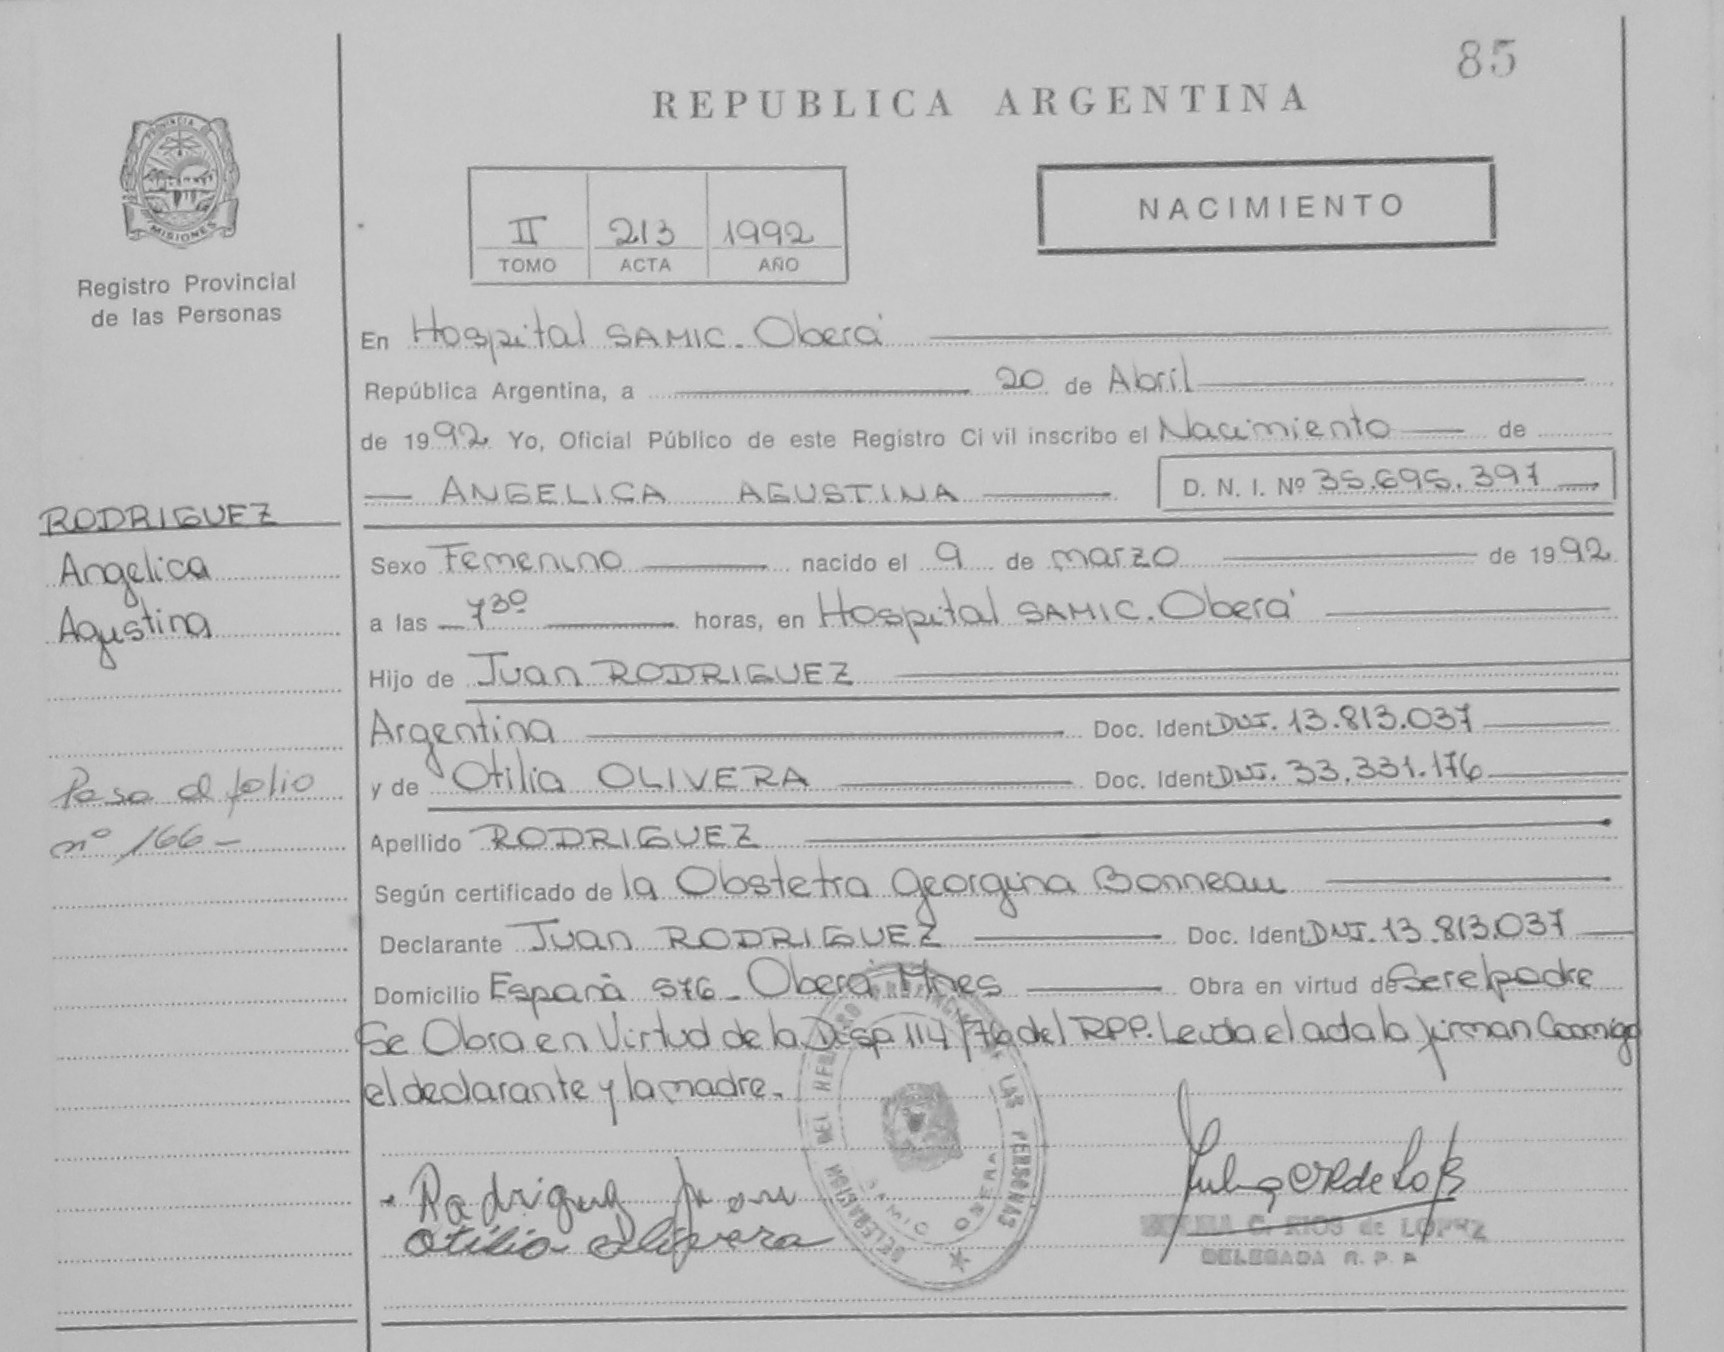 85
REPUBLICA ARGENTINA
PROVINCIA DE
MISIONES
Registro Provincial
de las Personas
II 213 1992
TOMO ACTA AÑO
NACIMIENTO
En Hospital SAMIC. Oberá
República Argentina, a 20 de Abril
de 1992 Yo, Oficial Público de este Registro Civil inscribo el Nacimiento de
ANGELICA AGUSTINA D. N. I. Nº 35.695.397
RODRIGUEZ
Angelica
Agustina
Sexo Femenino nacido el 9 de marzo de 1992
a las 7³⁰ horas, en Hospital SAMIC. Oberá
Hijo de Juan RODRIGUEZ
Argentina Doc. Ident DNI. 13.813.037
y de Otilia OLIVERA Doc. Ident DNI. 33.331.176
Pasa al folio
nº 166-
Apellido RODRIGUEZ
Según certificado de la Obstetra Georgina Bonneau
Declarante Juan RODRIGUEZ Doc. Ident DNI. 13.813.037
Domicilio España 576 - Oberá Mnes Obra en virtud de Ser el padre
Se Obra en Virtud de la Disp 114/76 del RPP. Leida el acta la firman Conmigo
el declarante y la madre.
DELEGACION DEL REGISTRO PROVINCIAL DE LAS PERSONAS
SAMIC OBERA
Rodriguez Juan
Otilia Olivera
C. RIOS de LOPEZ
DELEGADA R. P. P